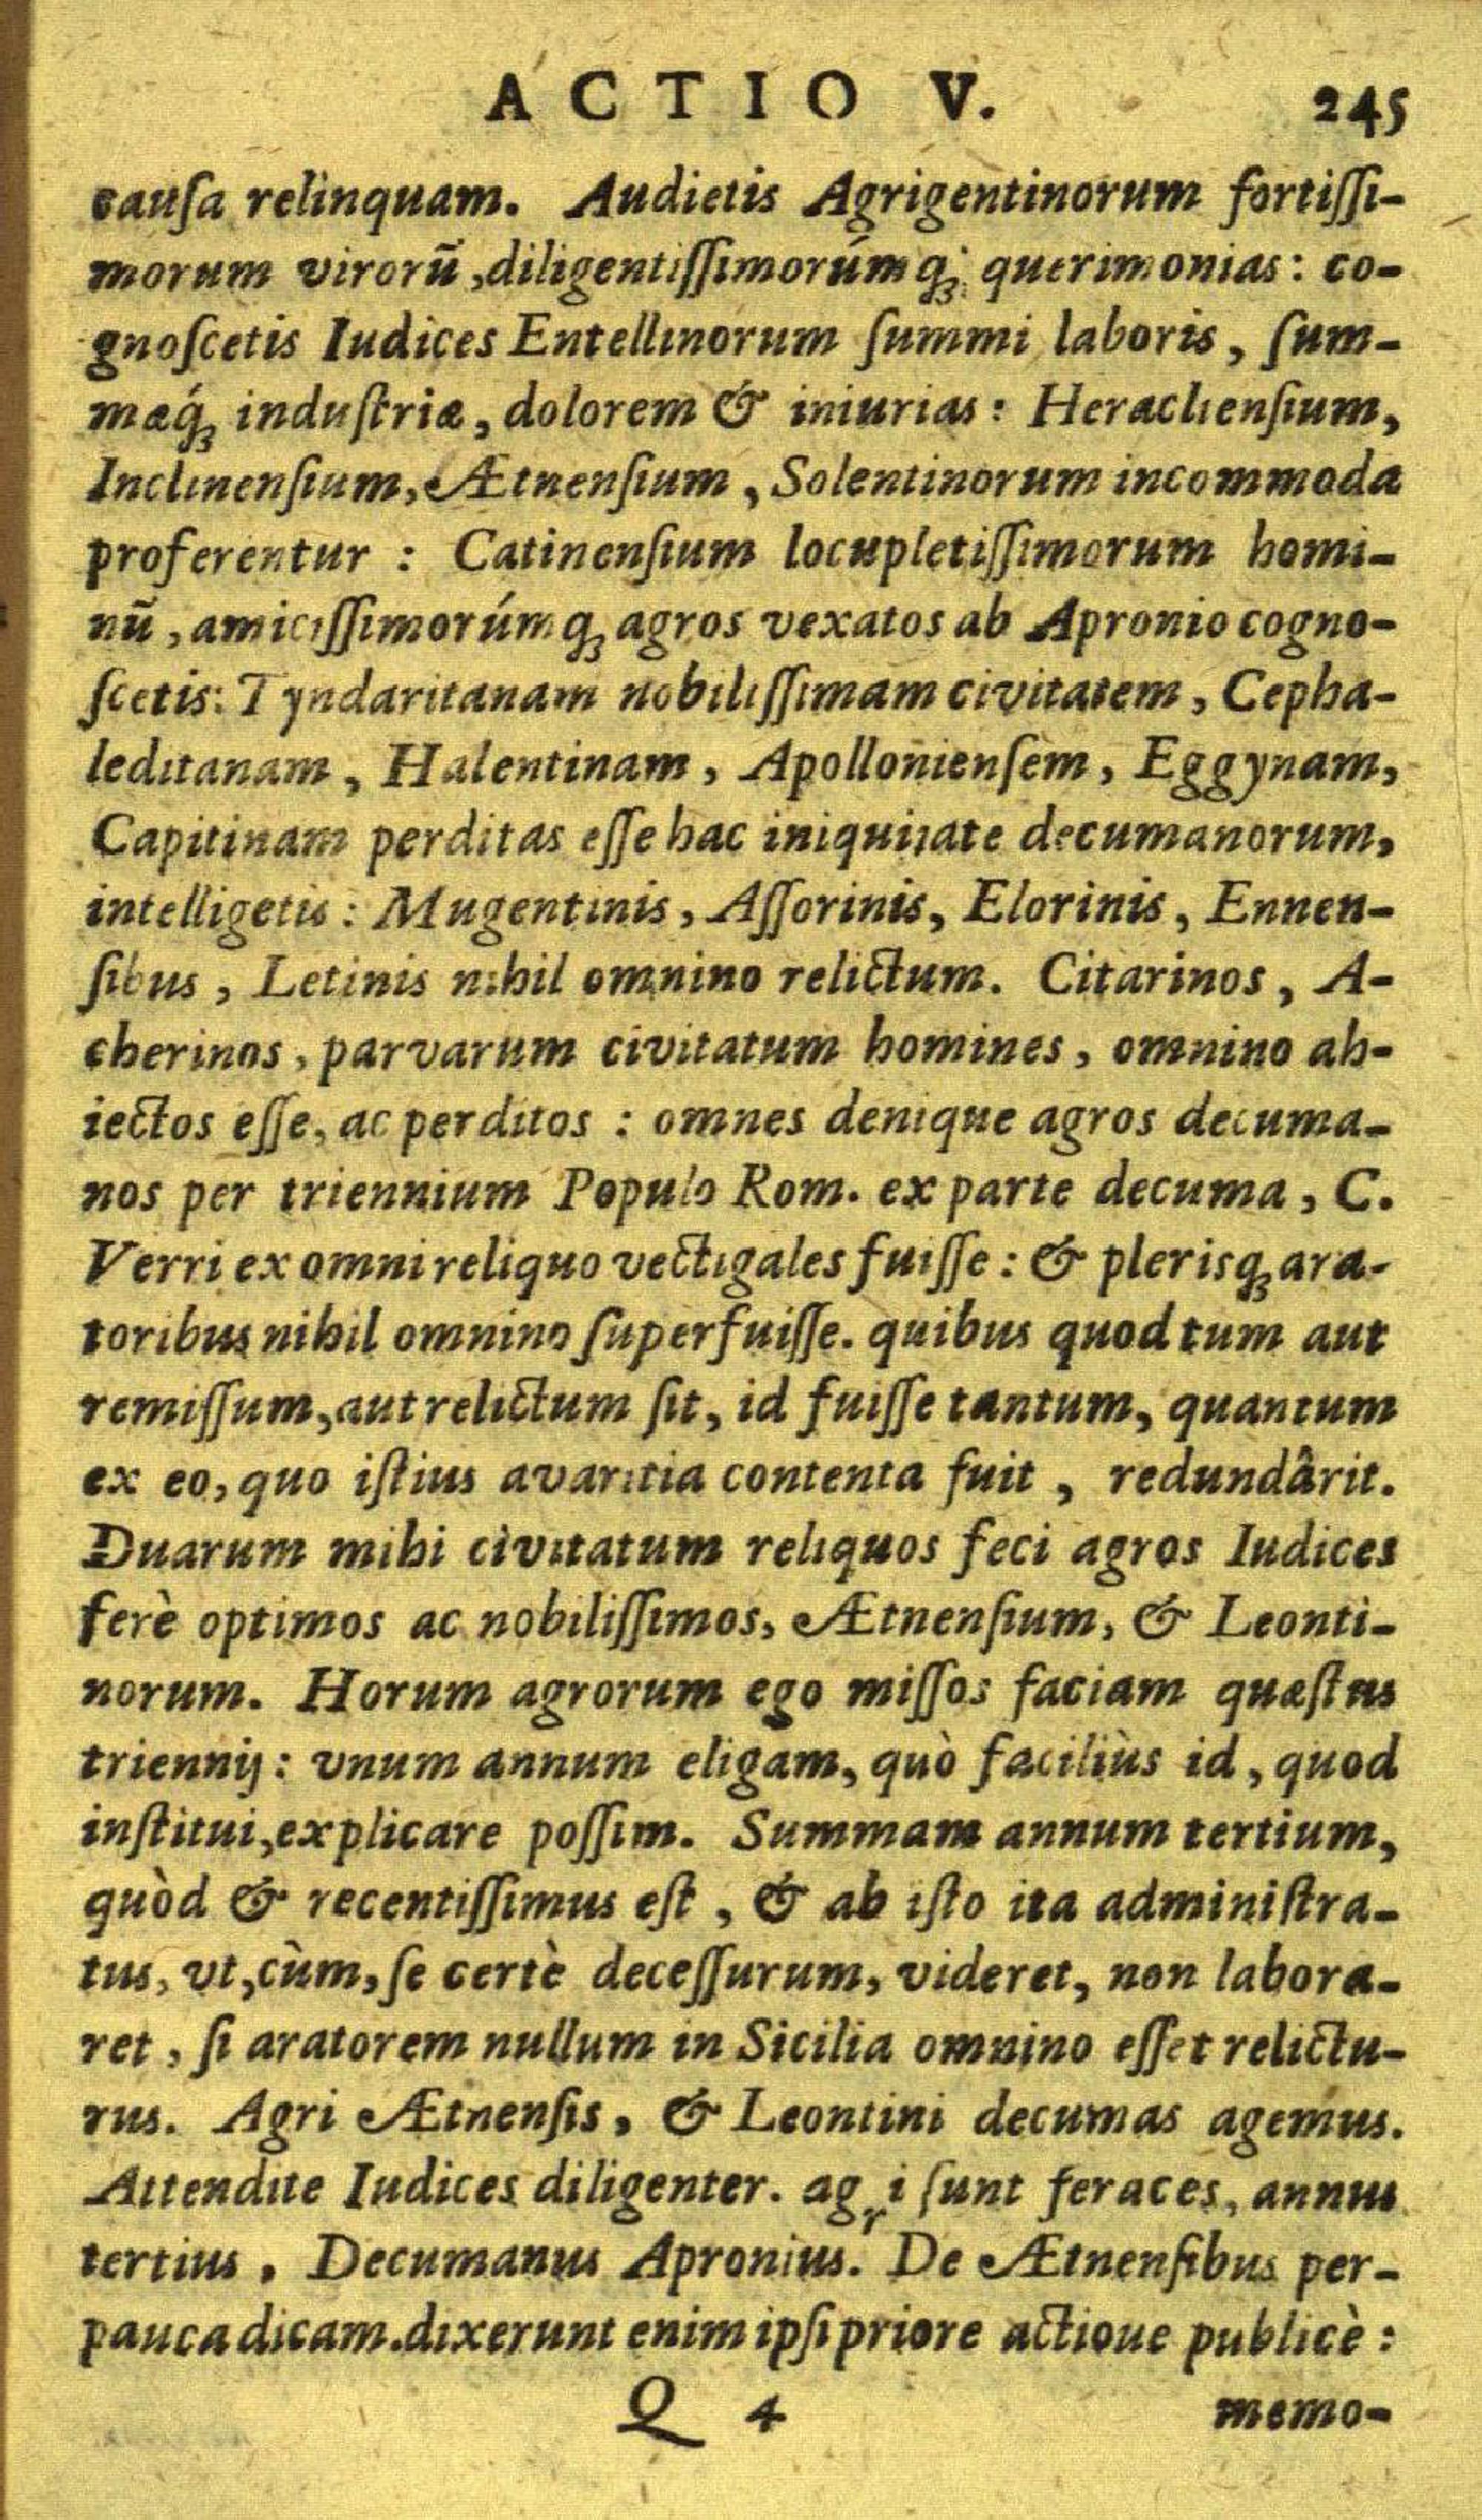 ACTIO V. 245
cauſa relinquam. Audietis Agrigentinorum fortiſſi-
morum virorũ, diligentiſſimorúmq́; querimonias: co-
gnoſcetis Iudices Entellinorum ſummi laboris, ſum-
mæq́; induſtriæ, dolorem & iniurias: Heraclienſium,
Inclinenſium, Ætnenſium, Solentinorum incommoda
proferentur: Catinenſium locupletiſſimorum homi-
nũ, amiciſſimorúmq; agros vexatos ab Apronio cogno-
ſcetis: Tyndaritanam nobiliſſimam civitatem, Cepha-
leditanam, Halentinam, Apollonienſem, Eggynam,
Capitinam perditas eſſe hac iniquitate decumanorum,
intelligetis: Mugentinis, Aſſorinis, Elorinis, Ennen-
ſibus, Letinis nihil omnino relictum. Citarinos, A-
cherinos, parvarum civitatum homines, omnino ab-
iectos eſſe, ac perditos: omnes denique agros decuma-
nos per triennium Populo Rom. ex parte decuma, C.
Verri ex omni reliquo vectigales fuiſſe: & plerisq; ara-
toribus nihil omnino ſuperfuiſſe. quibus quod tum aut
remiſſum, aut relictum ſit, id fuiſſe tantum, quantum
ex eo, quo iſtius avaritia contenta fuit, redundârit.
Duarum mihi civitatum reliquos feci agros Iudices
ferè optimos ac nobiliſſimos, Ætnenſium, & Leonti-
norum. Horum agrorum ego miſſos faciam quæſtus
triennij: vnum annum eligam, quò faciliùs id, quod
inſtitui, explicare poſſim. Summam annum tertium,
quòd & recentiſſimus eſt, & ab iſto ita adminiſtra-
tus, vt, cùm, ſe certè deceſſurum, videret, non labora-
ret, ſi aratorem nullum in Sicilia omnino eſſet relictu-
rus. Agri Ætnenſis, & Leontini decumas agemus.
Attendite Iudices diligenter. agri ſunt feraces, annus
tertius. Decumanus Apronius. De Ætnenſibus per-
pauca dicam. dixerunt enim ipſi priore actione publicè:
Q 4 memo-